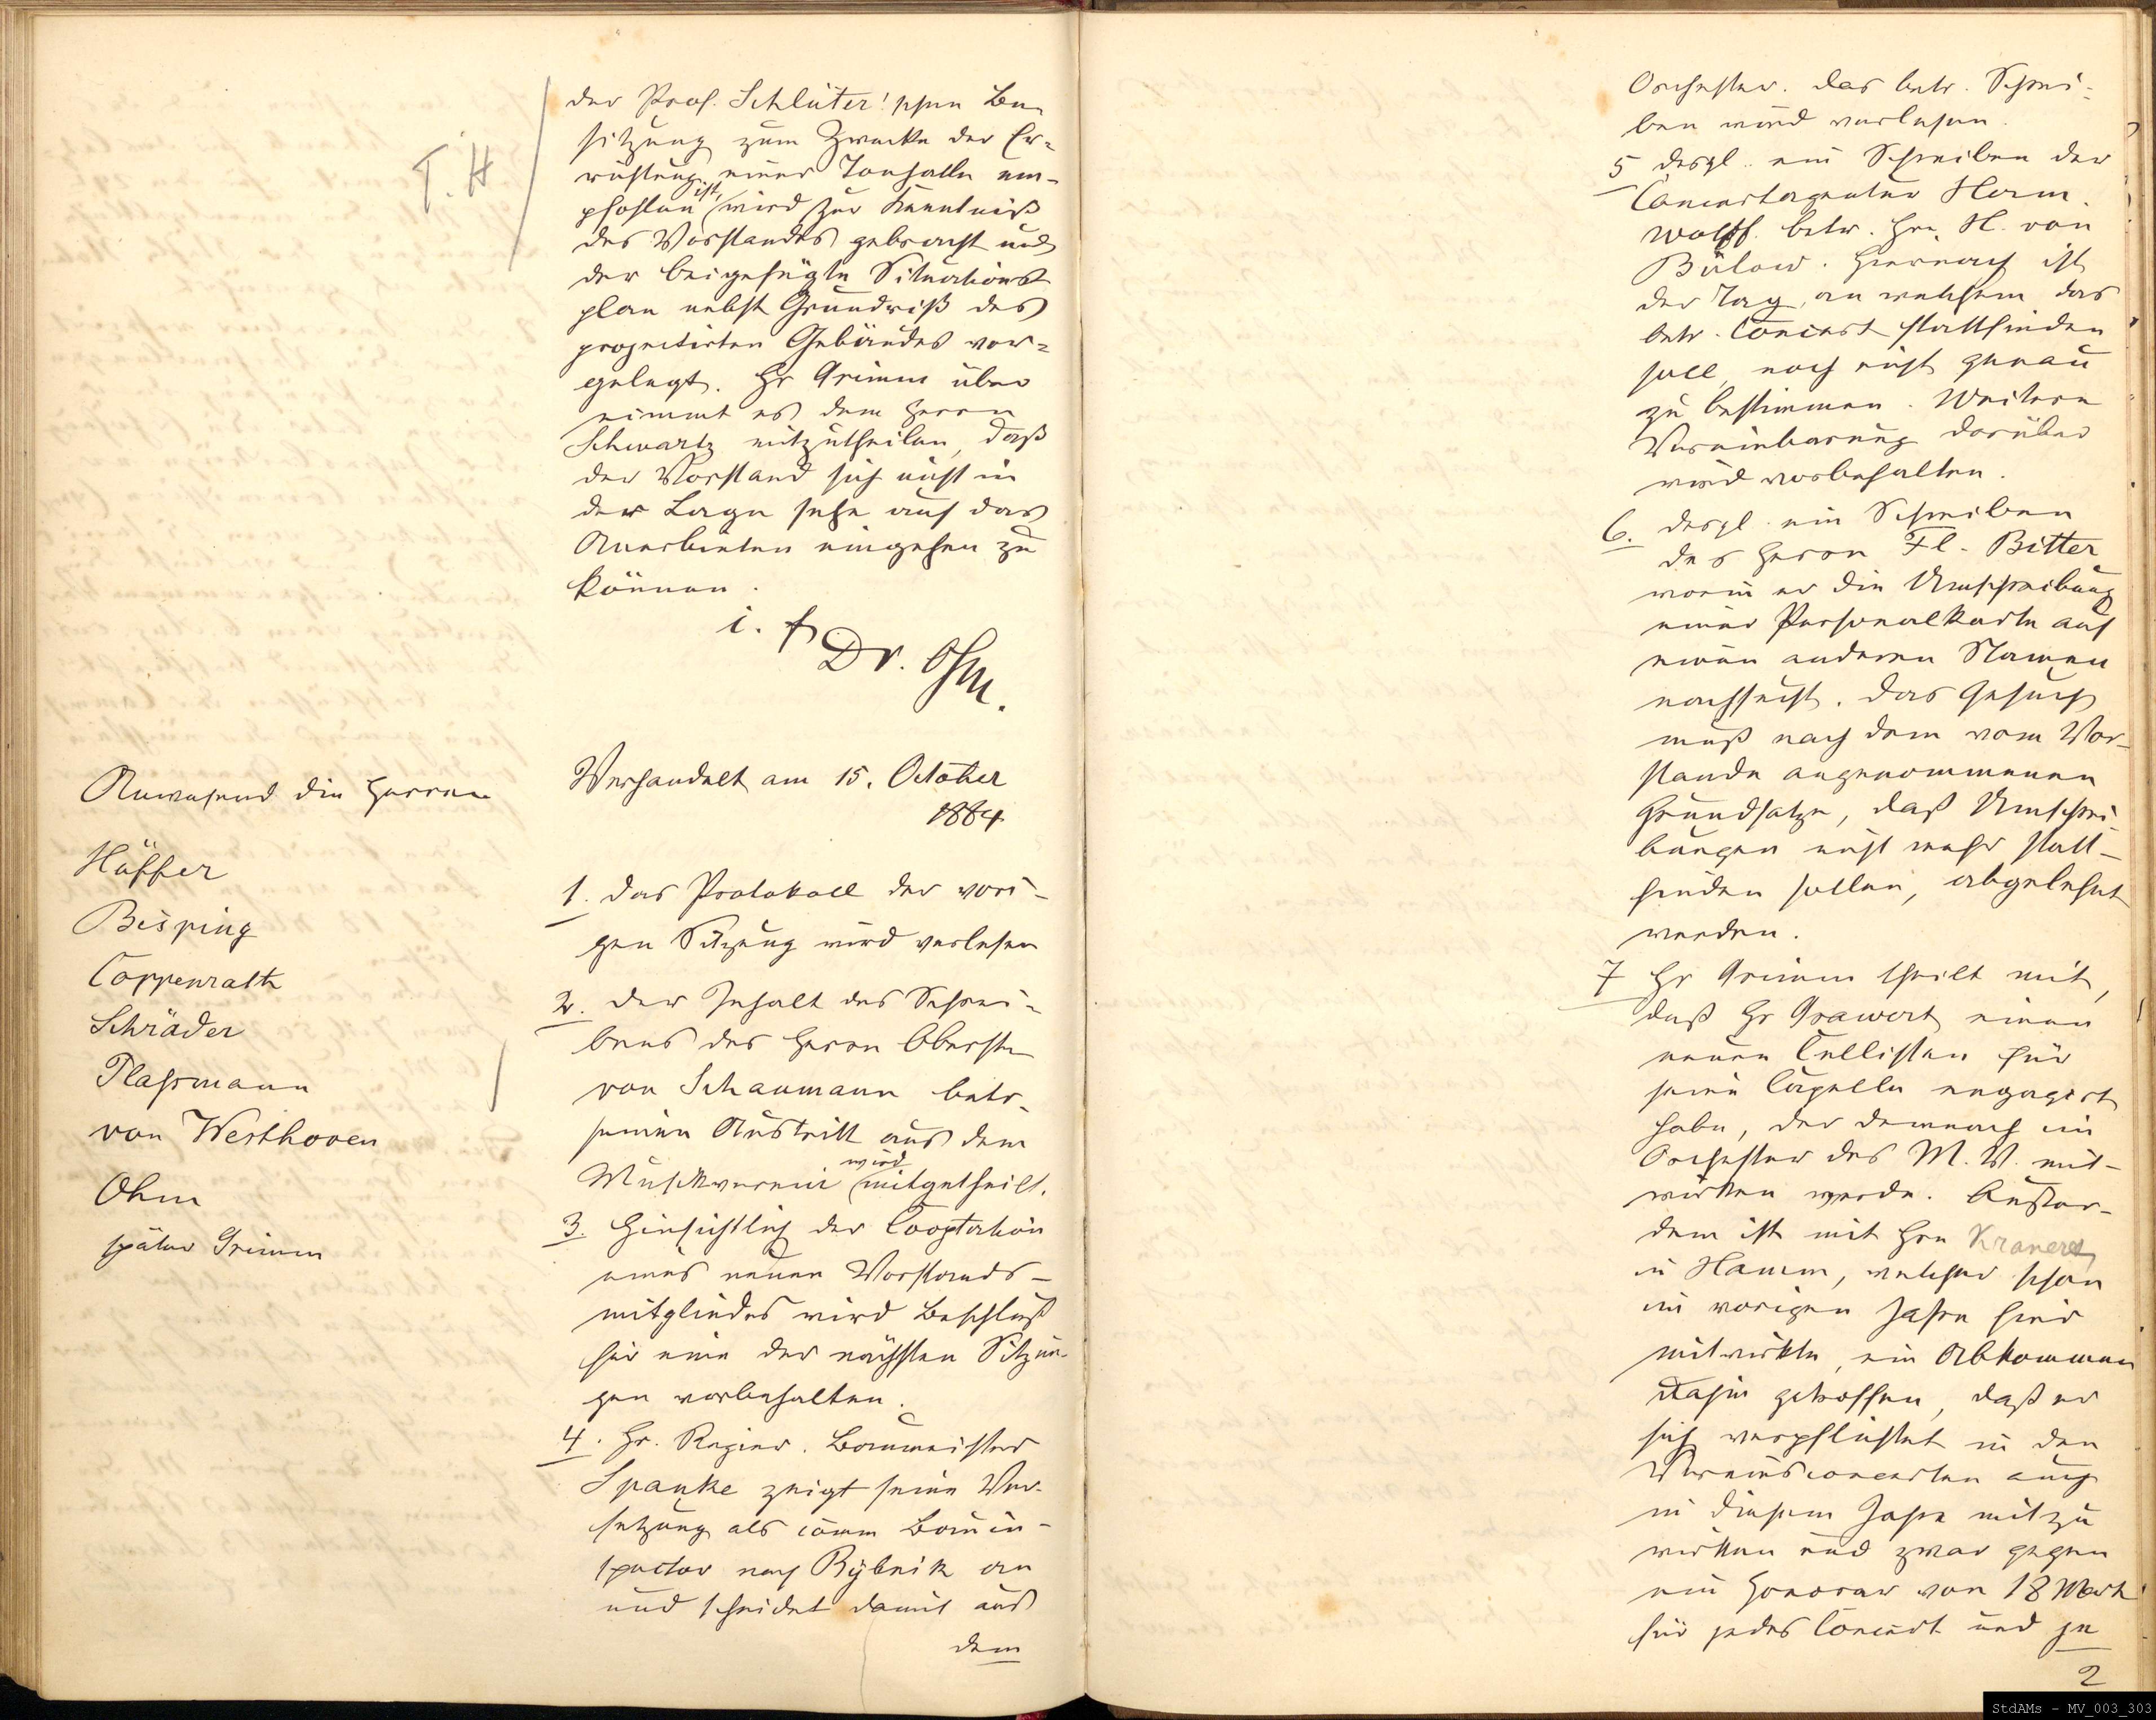 T. H
der Prof. Schlüter'schen Be-
sitzung zum Zwecke der Er-
richtung einer Tonhalle em-
pfohlen ist, wird zur Kenntniß
des Vorstandes gebracht und
der beigefügte Situations
plan nebst Grundriß des
projectirten Gebäudes vor-
gelegt. Hr Grimm über
nimmt es dem Herrn
Schwartz mitzutheilen, daß
der Vorstand sich nicht in
der Lage sehe auf das
Anerbieten eingehen zu
können.
Dr. Ohm.
Verhandelt am 15. October
1884
Anwesend die Herren
Hüffer
Bisping
Coppenrath
Schräder
Plassmann
von Westhoven
Ohm
später Grimm
1. Das Protokoll der vori-
gen Sitzung wird verlesen
2. Der Inhalt des Schrei-
bens des Herrn Oberst
von Schaumann betr.
seinen Austritt aus dem
Musikverein wird mitgetheilt.
3. Hinsichtlich der Cooptation
eines neuen Vorstands-
mitgliedes wird Beschluß
für eine der nächsten Sitzun-
gen vorbehalten.
4. Hr. Regier. Baumeister
Spanke zeigt seine Ver-
setzung als comm Bauin-
spector nach Rybnik an
und scheidet damit aus
dem
Orchester. Das betr. Schrei-
ben wird verlesen.
5 desgl. ein Schreiben der
Concertagentur Herm.
Wolff. betr. Hrn. H. von
Bülow. Hiernach ist
der Tag, an welchem das
betr. Concert stattfinden
soll, noch nicht genau
zu bestimmen. Weitere
Vereinbarung darüber
wird vorbehalten.
6. desgl. ein Schreiben
des Herrn Fl. Bitter
worin er die Umschreibung
einer Personalkarte auf
einen anderen Namen
nachsucht. Das Gesuch
muß nach dem vom Vor-
stande angenommenen
Grundsatze, daß Umschrei-
bungen nicht mehr statt-
finden sollen, abgelehnt
werden.
7 Hr Grimm theilt mit,
daß Hr Grawert einen
neuen Cellisten für
seine Capelle engagirt
habe, der demnach im
Orchester des M. V. mit-
wirken werde. Außer-
dem ist mit Hrn
in Hamm, welcher schon
im vorigen Jahre hier
mitwirkte, ein Abkommen
dahin getroffen, daß er
sich verpflichtet in den
Vereinsconcerten auch
in diesem Jahre mitzu
wirken und zwar gegen
ein Honorar von 18 Mark
für jedes Concert und je
2
StdAMs - MV_003_303